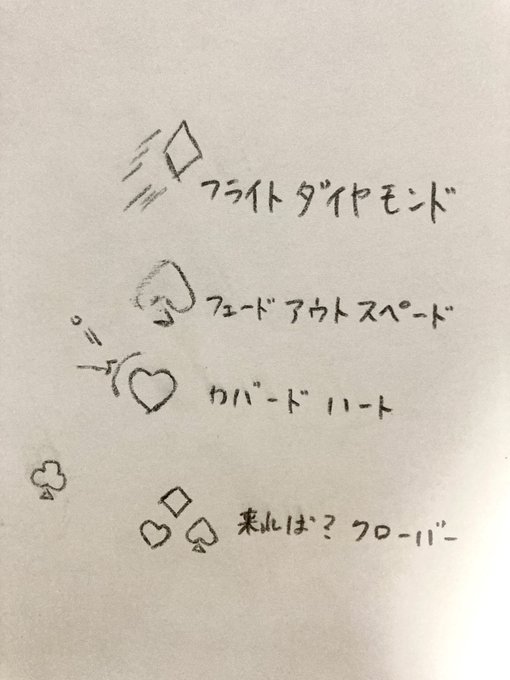 フライト ダイヤモンド
フェードアウト スペード
カバード ハート
来れば? クローバー